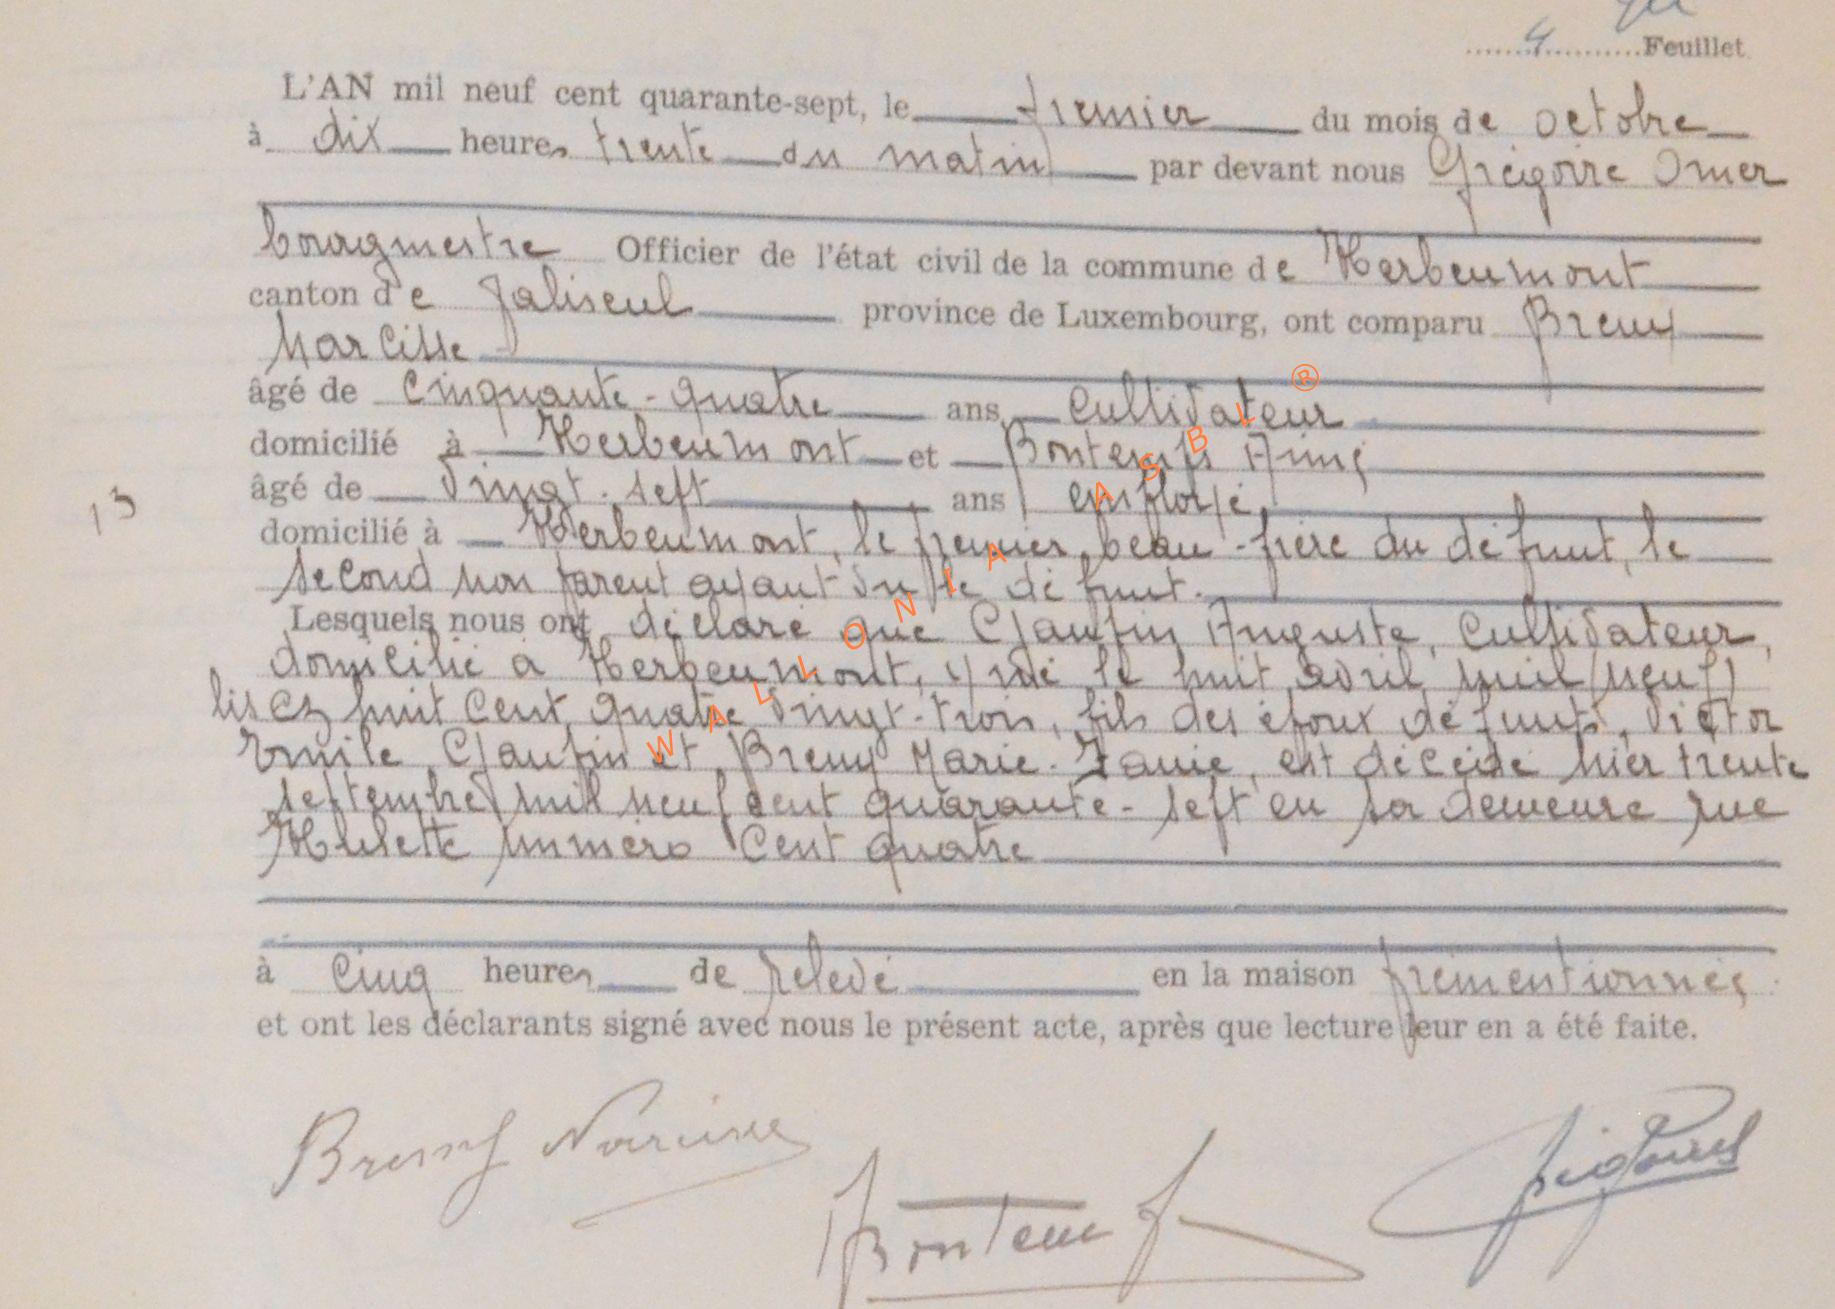 4 Feuillet
L'AN mil neuf cent quarante-sept, le premier du mois de octobre
à dix heures trente du matin par devant nous Grégoire Omer
bourgmestre Officier de l'état civil de la commune de Herbeumont
canton de Paliseul province de Luxembourg, ont comparu Breny
Narcisse
âgé de cinquante-quatre ans cultivateur
domicilié à Herbeumont et Bontemps Aimé
âgé de vingt-sept ans employé,
domicilié à Herbeumont, le premier beau-frère du défunt, le
second non parent ayant vu le défunt.
Lesquels nous ont déclaré que Claufin Auguste, cultivateur,
domicilié à Herbeumont, y né le huit avril mil (neuf)
lisez huit cent quatre vingt-trois, fils des époux défunts, Victor
Emile Claufin et Breny Marie-, est décédé hier trente
septembre mil neuf cent quarante-sept en sa demeure rue
Hulette numéro cent quatre
à cinq heures de relevé en la maison prémentionnée
et ont les déclarants signé avec nous le présent acte, après que lecture leur en a été faite.
13
Breny Narcisse
ABontemps
WALLONIA ASBL ®